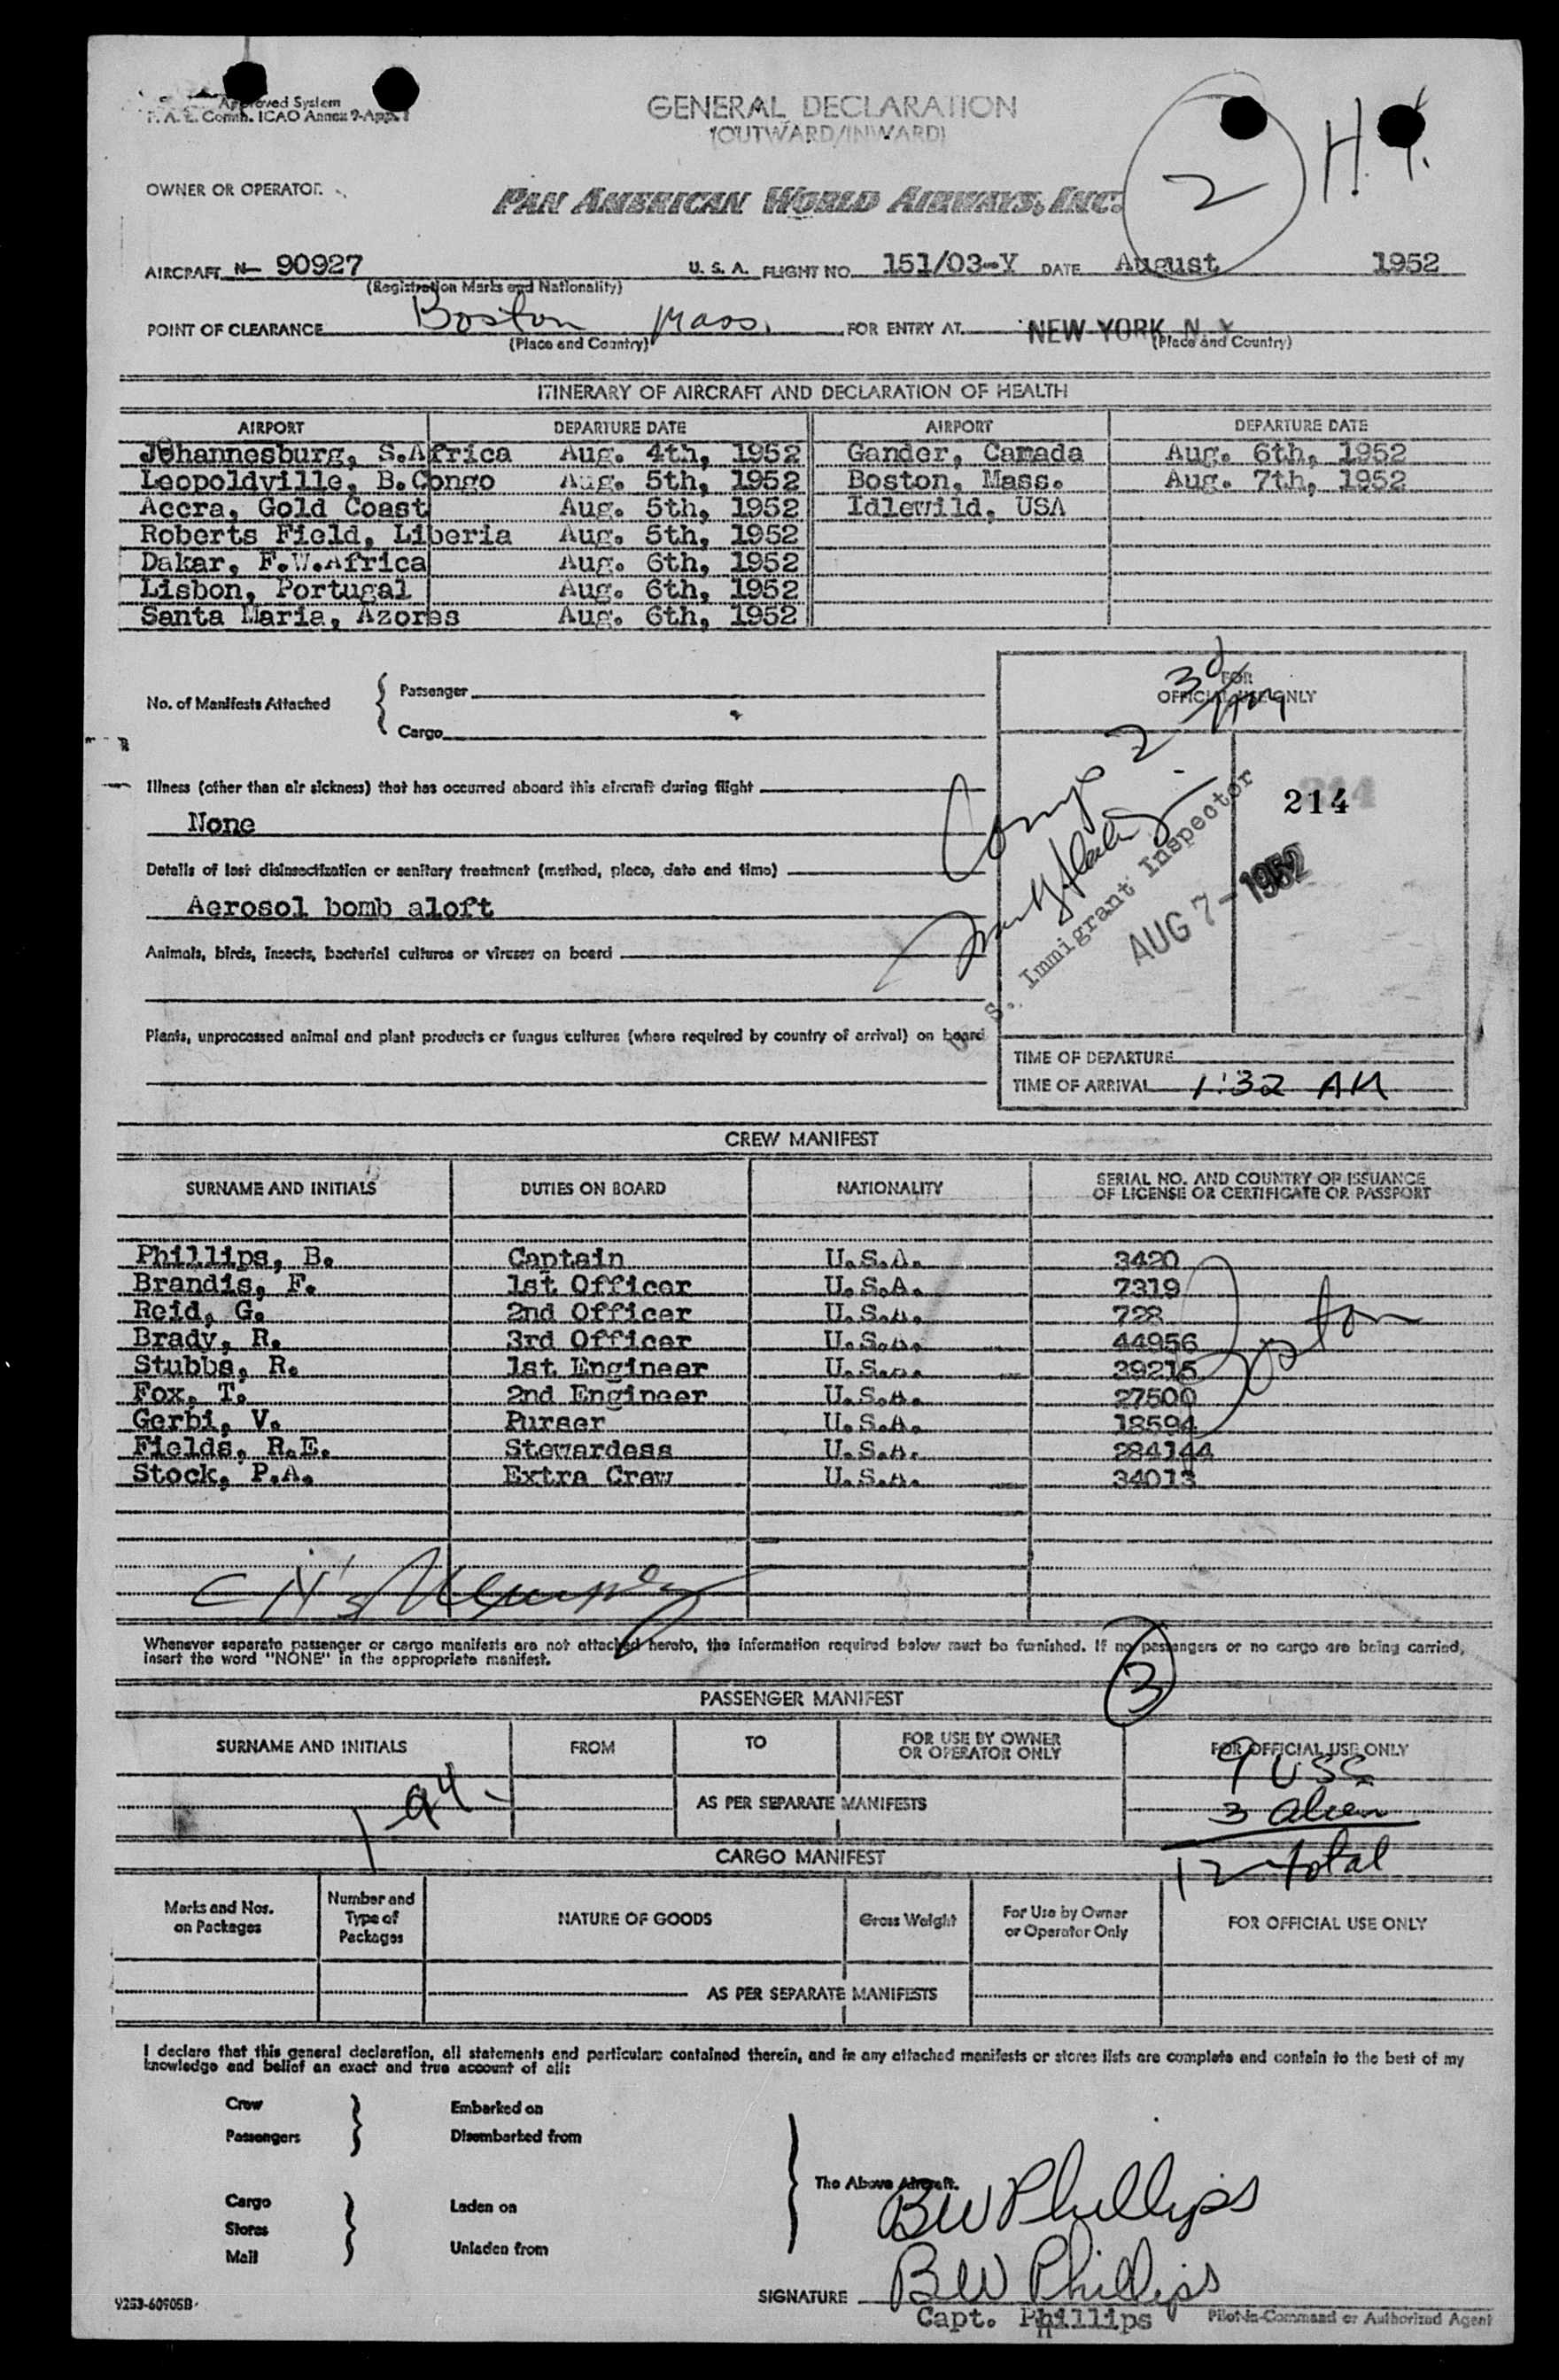 Approved System
F. A. L. Comm. ICAO Annex 9-App. 1
GENERAL DECLARATION
(OUTWARD/INWARD)
2
H.
OWNER OR OPERATOR
PAN AMERICAN WORLD AIRWAYS, INC.
AIRCRAFT N- 90927 U. S. A. FLIGHT NO. 151/03-Y DATE August 1952
(Registration Marks and Nationality)
POINT OF CLEARANCE Boston Mass. FOR ENTRY AT NEW YORK N. Y.
(Place and Country) (Place and Country)
ITINERARY OF AIRCRAFT AND DECLARATION OF HEALTH
AIRPORT DEPARTURE DATE AIRPORT DEPARTURE DATE
Johannesburg, S.Africa Aug. 4th, 1952 Gander, Canada Aug. 6th, 1952
Leopoldville, B.Congo Aug. 5th, 1952 Boston, Mass. Aug. 7th, 1952
Accra, Gold Coast Aug. 5th, 1952 Idlewild, USA
Roberts Field, Liberia Aug. 5th, 1952
Dakar, F.W.Africa Aug. 6th, 1952
Lisbon, Portugal Aug. 6th, 1952
Santa Maria, Azores Aug. 6th, 1952
No. of Manifests Attached { Passenger
Cargo
FOR
OFFICIAL USE ONLY
Illness (other than air sickness) that has occurred aboard this aircraft during flight
None
214
Details of last disinsectization or sanitary treatment (method, place, date and time)
Aerosol bomb aloft
U. S. Immigrant Inspector
AUG 7 - 1952
Animals, birds, insects, bacterial cultures or viruses on board
Plants, unprocessed animal and plant products or fungus cultures (where required by country of arrival) on board
TIME OF DEPARTURE
TIME OF ARRIVAL 1:32 AM
CREW MANIFEST
SURNAME AND INITIALS DUTIES ON BOARD NATIONALITY SERIAL NO. AND COUNTRY OF ISSUANCE
OF LICENSE OR CERTIFICATE OR PASSPORT
Phillips, B. Captain U.S.A. 3420
Brandis, F. 1st Officer U.S.A. 7319
Reid, G. 2nd Officer U.S.A. 728
Brady, R. 3rd Officer U.S.A. 44956
Stubbs, R. 1st Engineer U.S.A. 39215
Fox, T. 2nd Engineer U.S.A. 27500
Gerbi, V. Purser U.S.A. 18594
Fields, R.E. Stewardess U.S.A. 284144
Stock, P.A. Extra Crew U.S.A. 34013
Boston
Whenever separate passenger or cargo manifests are not attached hereto, the information required below must be furnished. If no passengers or no cargo are being carried,
insert the word "NONE" in the appropriate manifest.
3
PASSENGER MANIFEST
SURNAME AND INITIALS FROM TO FOR USE BY OWNER
OR OPERATOR ONLY FOR OFFICIAL USE ONLY
9 USC
AS PER SEPARATE MANIFESTS 3 alien
12 total
CARGO MANIFEST
Marks and Nos.
on Packages Number and
Type of
Packages NATURE OF GOODS Gross Weight For Use by Owner
or Operator Only FOR OFFICIAL USE ONLY
AS PER SEPARATE MANIFESTS
I declare that this general declaration, all statements and particulars contained therein, and in any attached manifests or stores lists are complete and contain to the best of my
knowledge and belief an exact and true account of all:
Crew Embarked on
Passengers Disembarked from
The Above Aircraft.
Cargo Laden on
Stores
Mail Unladen from
BW Phillips
SIGNATURE BW Phillips
Capt. Phillips Pilot-in-Command or Authorized Agent
9253-60905B